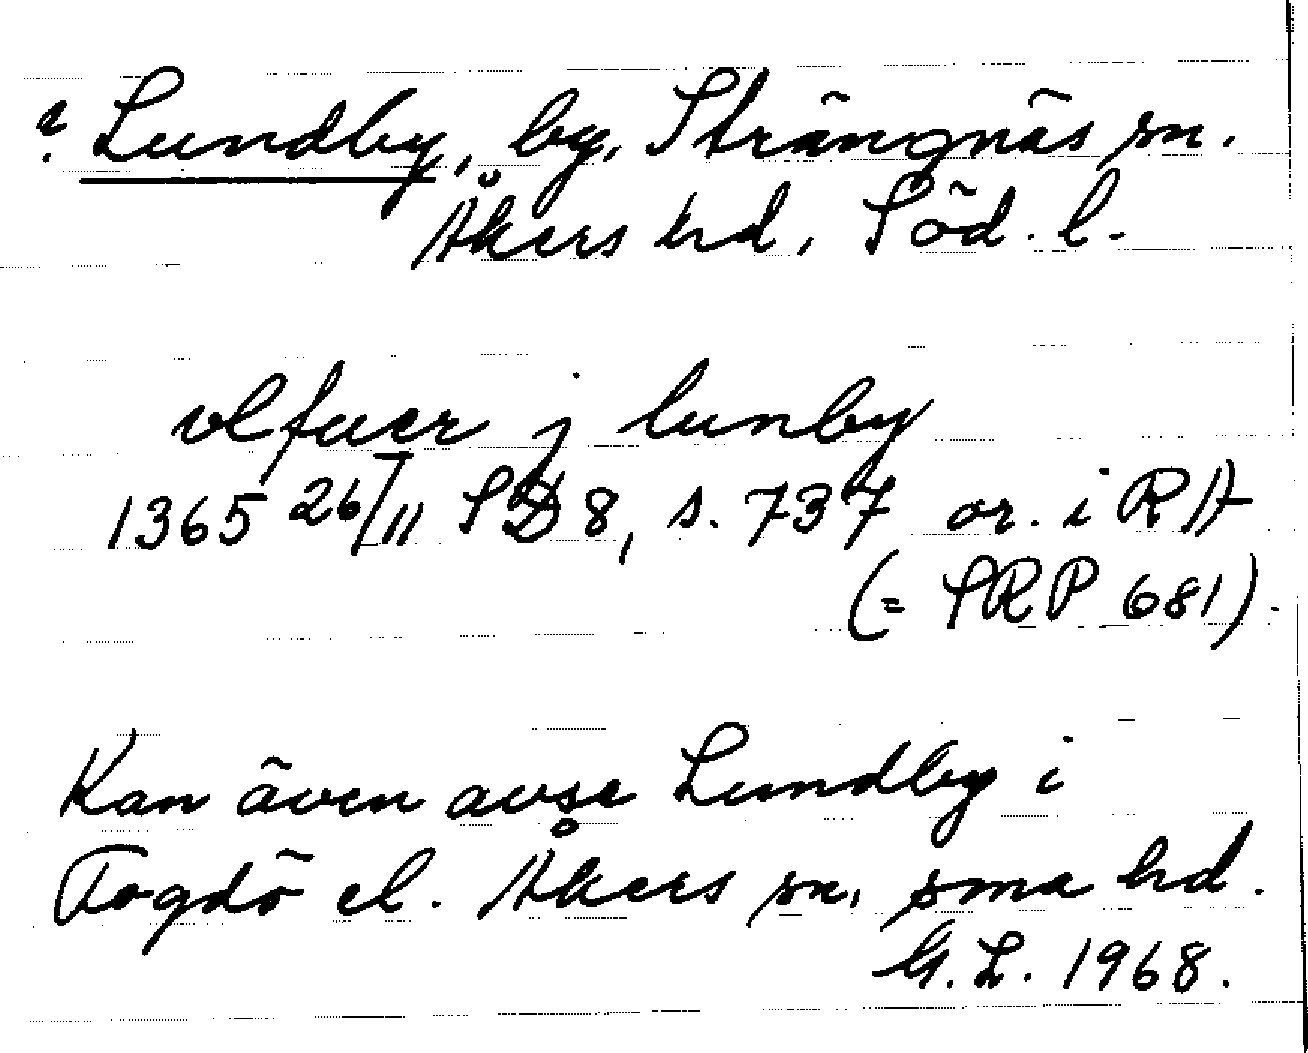 ? Lundby, by, Strängnäs sn.
Åkers hd, Söd. l.
vlfuer j lunby
1365 26/11 SD 8, s. 737 or. i RA
(= SRP 681).
Kan även avse Lundby i
Fogdö el. Åkers sn, sma hd.
G.L. 1968.